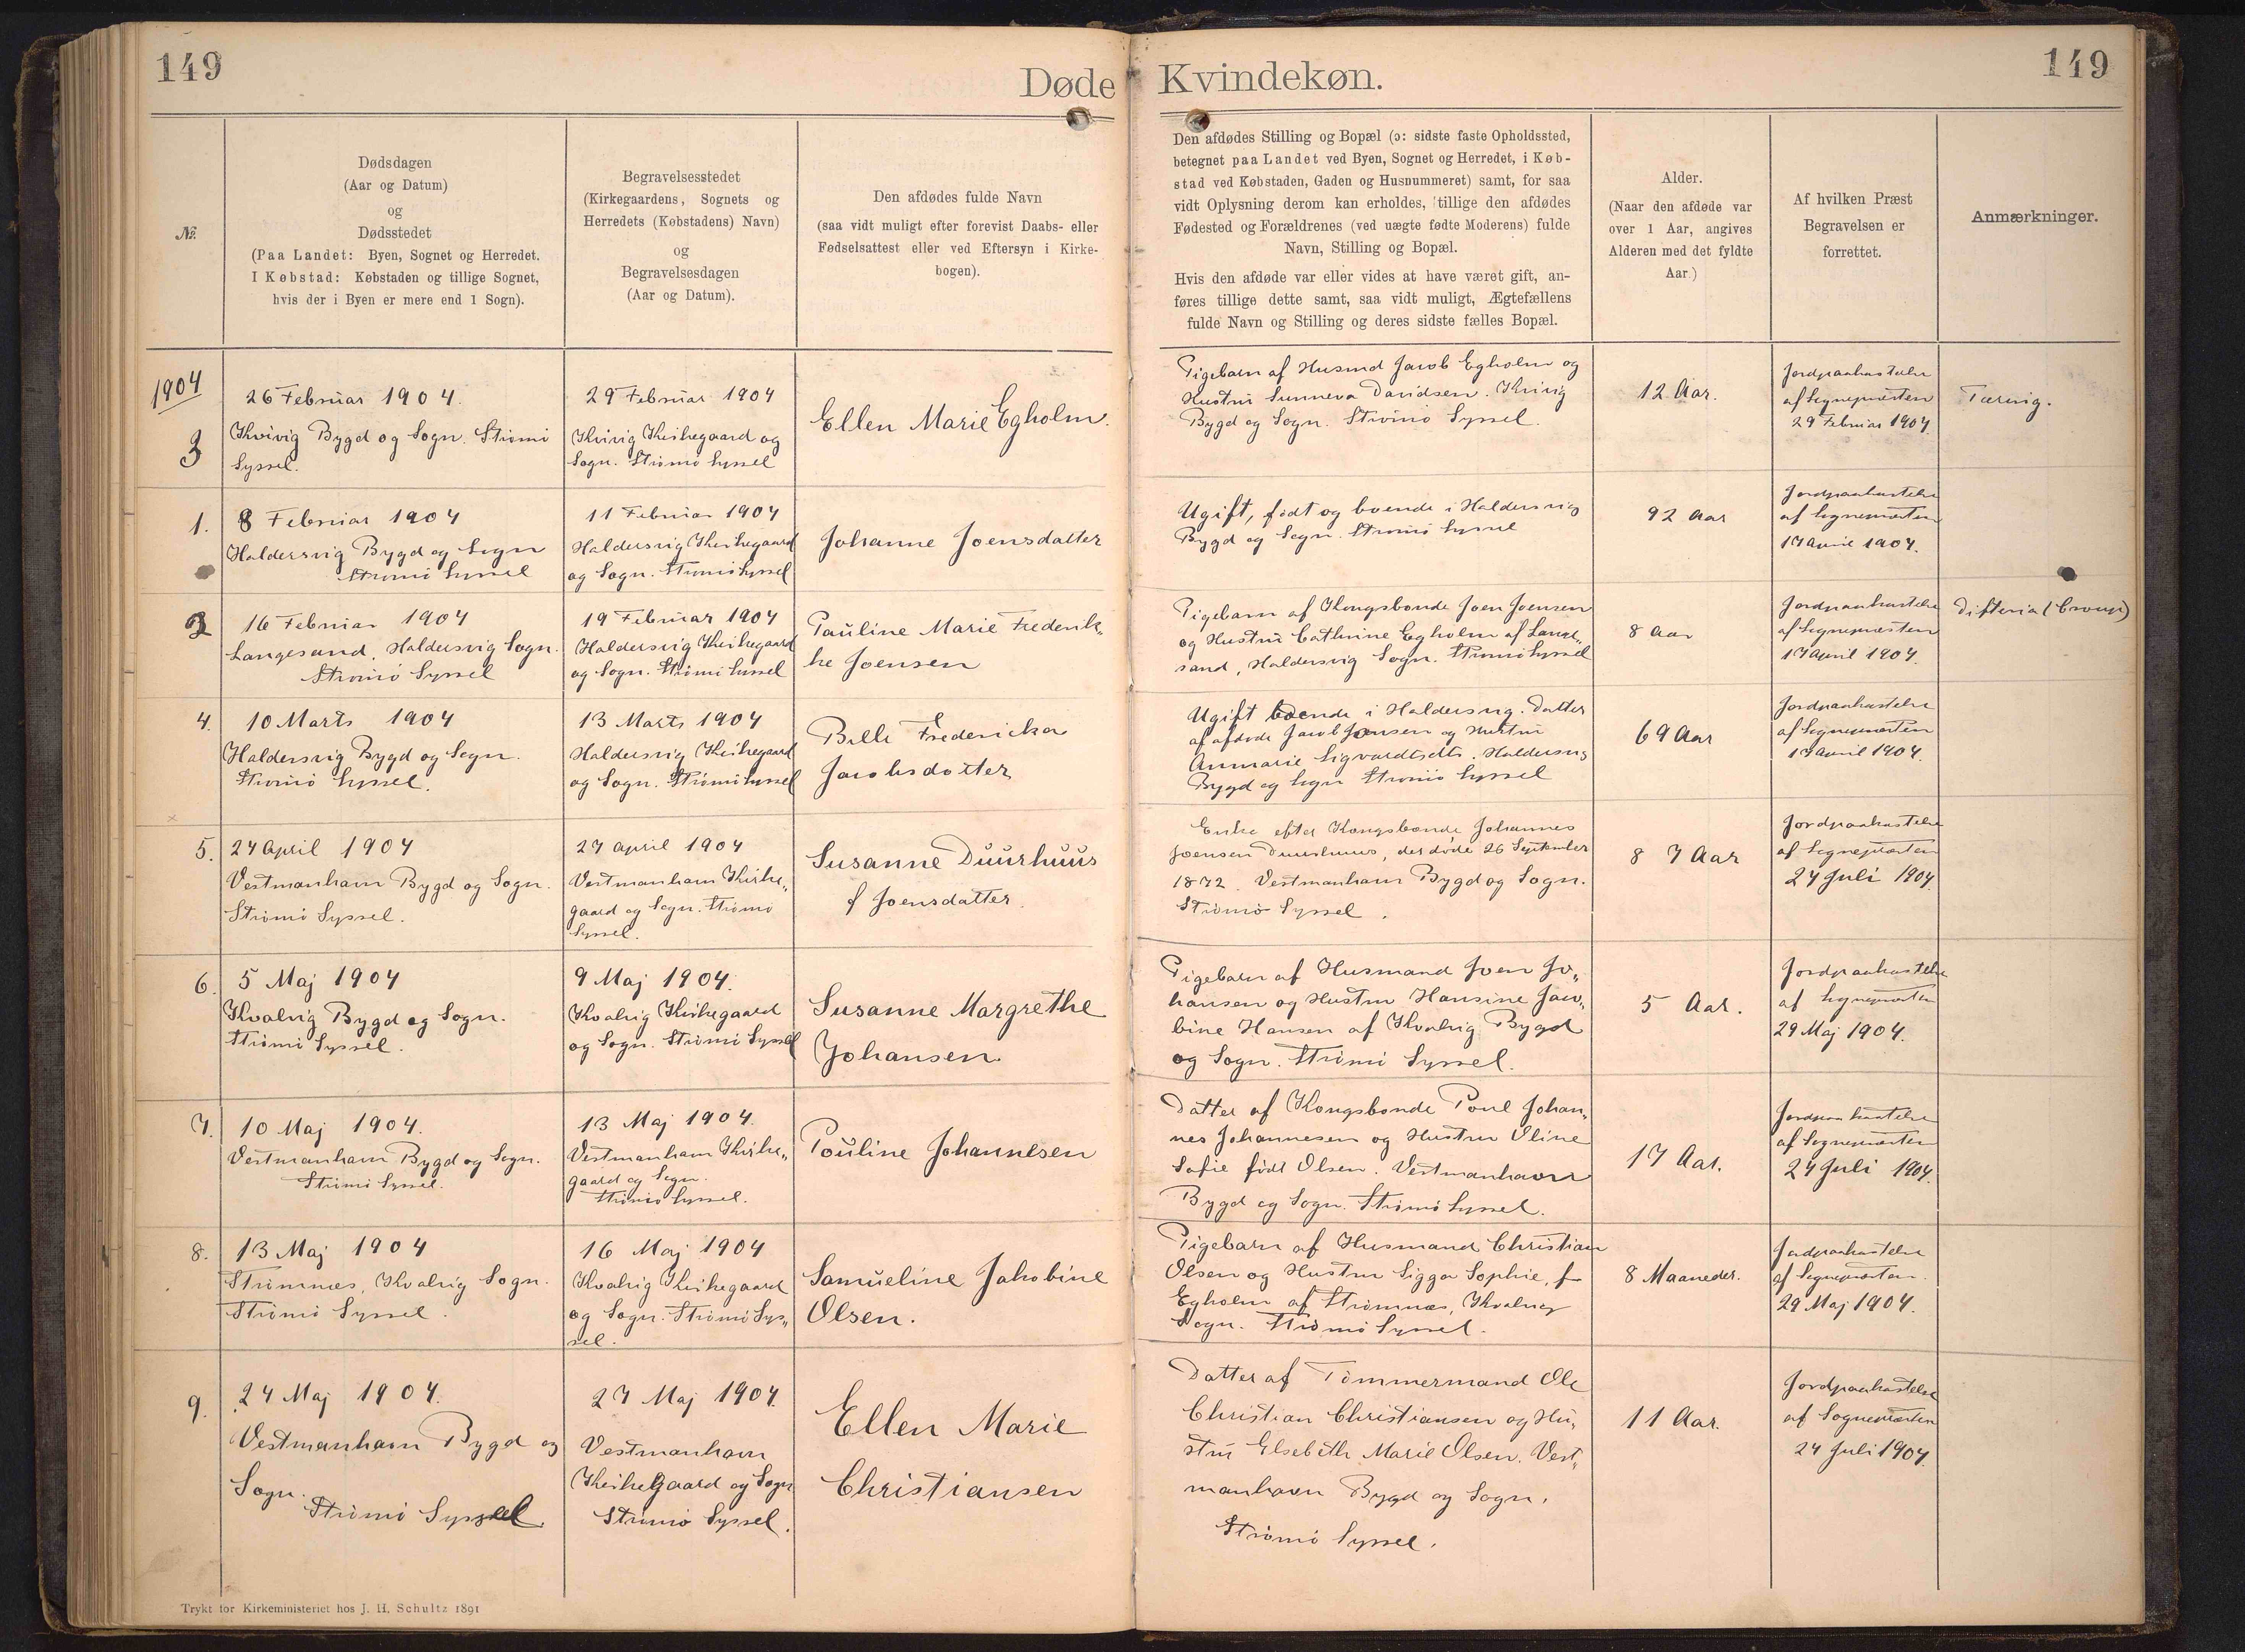 149
149
Døde Kvindekøn.
№.
Dødsdagen
(Aar og Datum)
og
Dødsstedet
(Paa Landet: Byen, Sognet og Herredet.
I Købstad: Købstaden og tillige Sognet,
hvis der i Byen er mere end 1 Sogn).
Begravelsesstedet
(Kirkegaardens, Sognets og
Herredets (Købstadens) Navn)
og
Begravelsesdagen
(Aar og Datum).
Den afdødes fulde Navn
(saa vidt muligt efter forevist Daabs- eller
Fødselsattest eller ved Eftersyn i Kirke-
bogen).
Den afdødes Stilling og Bopæl (ɔ: sidste faste Opholdssted,
betegnet paa Landet ved Byen, Sognet og Herredet, i Køb-
stad ved Købstaden, Gaden og Husnummeret) samt, for saa
vidt Oplysning derom kan erholdes, tillige den afdødes
Fødested og Forældrenes (ved uægte fødte Moderens) fulde
Navn, Stilling og Bopæl.
Hvis den afdøde var eller vides at have været gift, an-
føres tillige dette samt, saa vidt muligt, Ægtefællens
fulde Navn og Stilling og deres sidste fælles Bopæl.
Alder.
(Naar den afdøde var
over 1 Aar, angives
Alderen med det fyldte
Aar.)
Af hvilken Præst
Begravelsen er
forrettet.
Anmærkninger.
1904
3
26 Februar 1904.
Kvivig Bygd og Sogn. Strømø
Syssel.
29 Februar 1904
Kvivig Kirkegaard og
Sogn. Strømø Syssel
Ellen Marie Egholm.
Pigebarn af Husmd Jacob Egholm og
Hustru Sunneva Davidsen. Kvivig
Bygd og Sogn. Strømø Syssel.
12 Aar.
Jordpaakastelse
af Sognepræsten
29 Februar 1904.
Tæring.
1.
8 Februar 1904
Haldersvig Bygd og Sogn
Strømø Syssel
11 Februar 1904
Haldersvig Kirkegaard
og Sogn. Strømø Syssel
Johanne Joensdatter
Ugift, født og boende i Haldersvig
Bygd og Sogn. Strømø Syssel
92 Aar
Jordpaakastelse
af Sognepræsten
17 April 1904.
2
16 Februar 1904
Langesand, Haldersvig Sogn.
Strømø Syssel
19 Februar 1904
Haldersvig Kirkegaard
og Sogn. Strømø Syssel
Pauline Marie Frederik„
ke Joensen
Pigebarn af Kongsbonde Joen Joensen
og Hustru Cathrine Egholm af Lange„
sand, Haldersvig Sogn. Strømø Syssel
8 Aar
Jordpaakastelse
af Sognepræsten
17 April 1904.
Difteria (Croup)
4.
10 Marts 1904
Haldersvig Bygd og Sogn.
Strømø Syssel.
13 Marts 1904
Haldersvig Kirkegaard
og Sogn. Strømø Syssel
Bille Fredericka
Jacobsdatter
Ugift boende i Haldersvig. Datter
af afdøde Jacob Joensen og Hustru
Annmarie Sigvardtsdtr. Haldersvig
Bygd og Sogn Strømø Syssel
69 Aar
Jordpaakastelse
af Sognepræsten
17 April 1904.
5.
24 April 1904
Vestmanhavn Bygd og Sogn.
Strømø Syssel.
27 April 1904
Vestmanhavn Kirke„
gaard og Sogn. Strømø
Syssel.
Susanne Duurhuus
f Joensdatter.
Enke efter Kongsbonde Johannes
Joensen Duurhuus, der døde 26 September
1872. Vestmanhavn Bygd og Sogn.
Strømø Syssel.
87 Aar
Jordpaakastelse
af Sognepræsten
24 Juli 1904
6.
5 Maj 1904
Kvalvig Bygd og Sogn.
Strømø Syssel.
9 Maj 1904.
Kvalvig Kirkegaard
og Sogn. Strømø Syssel
Susanne Margrethe
Johansen.
Pigebarn af Husmand Joen Jo„
hansen og Hustru Hansine Jaco„
bine Hansen af Kvalvig Bygd
og Sogn. Strømø Syssel.
5 Aar.
Jordpaakastelse
af Sognepræsten
29 Maj 1904.
7.
10 Maj 1904.
Vestmanhavn Bygd og Sogn.
Strømø Syssel.
13 Maj 1904.
Vestmanhavn Kirke„
gaard og Sogn.
Strømø Syssel.
Pouline Johannesen
Datter af Kongsbonde Poul Johan„
nes Johannesen og Hustru Oline
Sofie født Olsen. Vestmanhavn
Bygd og Sogn. Strømø Syssel.
17 Aar.
Jordpaakastelse
af Sognepræsten
24 Juli 1904.
8.
13 Maj 1904
Strømnæs, Kvalvig Sogn.
Strømø Syssel.
16 Maj 1904
Kvalvig Kirkegaard
og Sogn. Strømø Sys„
sel.
Samueline Jakobine
Olsen.
Pigebarn af Husmand Christian
Olsen og Hustru Sigga Sophie, f
Egholm af Strømnæs, Kvalvig
Sogn. Strømø Syssel.
8 Maaneder.
Jordpaakastelse
af Sognepræsten.
29 Maj 1904.
9.
24 Maj 1904.
Vestmanhavn Bygd og
Sogn.
Strømø Syssel
27 Maj 1904.
Vestmanhavn
Kirkegaard og Sogn
Strømø Syssel.
Ellen Marie
Christiansen
Datter af Tømmermand Ole
Christian Christiansen og Hu„
stru Elsebeth Marie Olsen. Vest„
manhavn Bygd og Sogn.
Strømø Syssel.
11 Aar.
Jordpaakastelse
af Sognepræsten
24 Juli 1904.
Trykt for Kirkeministeriet hos J. H. Schultz 1891